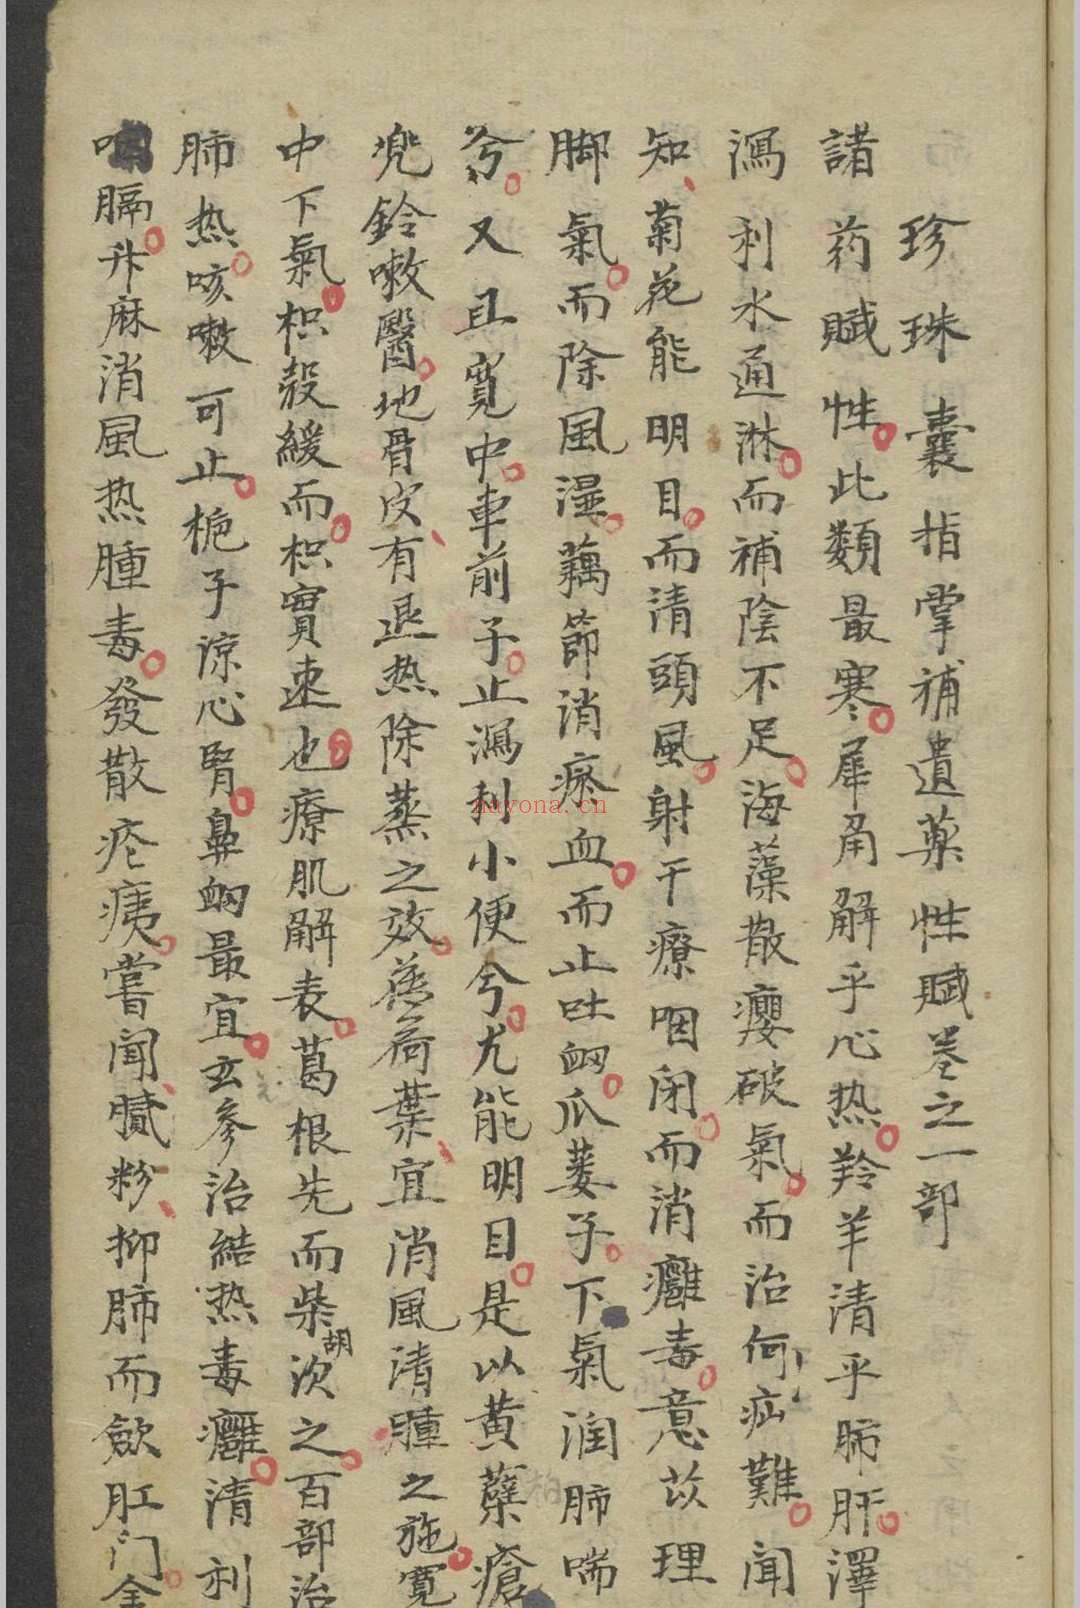 珍珠囊指掌補遺藥性賦卷之一部
諸药賦性。此類最寒。犀角解乎心热。羚羊清乎肺肝。澤
瀉利水通淋。而補陰不足。海藻散癭破氣。而治何疝難。聞
知、菊花能明目。而清頭風。射干療咽闭。而消癰毒。薏苡理
脚氣。而除風湿。藕節消瘀血。而止吐衂。瓜蔞子。下氣润肺喘
兮。又且寬中。車前子。止瀉利小便兮。尤能明目。是以黄蘗瘡
兜鈴嗽醫。地骨皮、有退热除蒸之效。薄荷葉、宜消風清腫之施。寬
中下氣。枳殼緩而。枳實速也。療肌解表。葛根先而柴胡次之。百部治
肺热。咳嗽可止。梔子凉心腎。鼻衂最宜。玄参治結热毒癰。清利
咽膈。升麻消風热腫毒。發散疮痍。嘗闻、膩粉、抑肺而歛肛门。金
nayona.cn